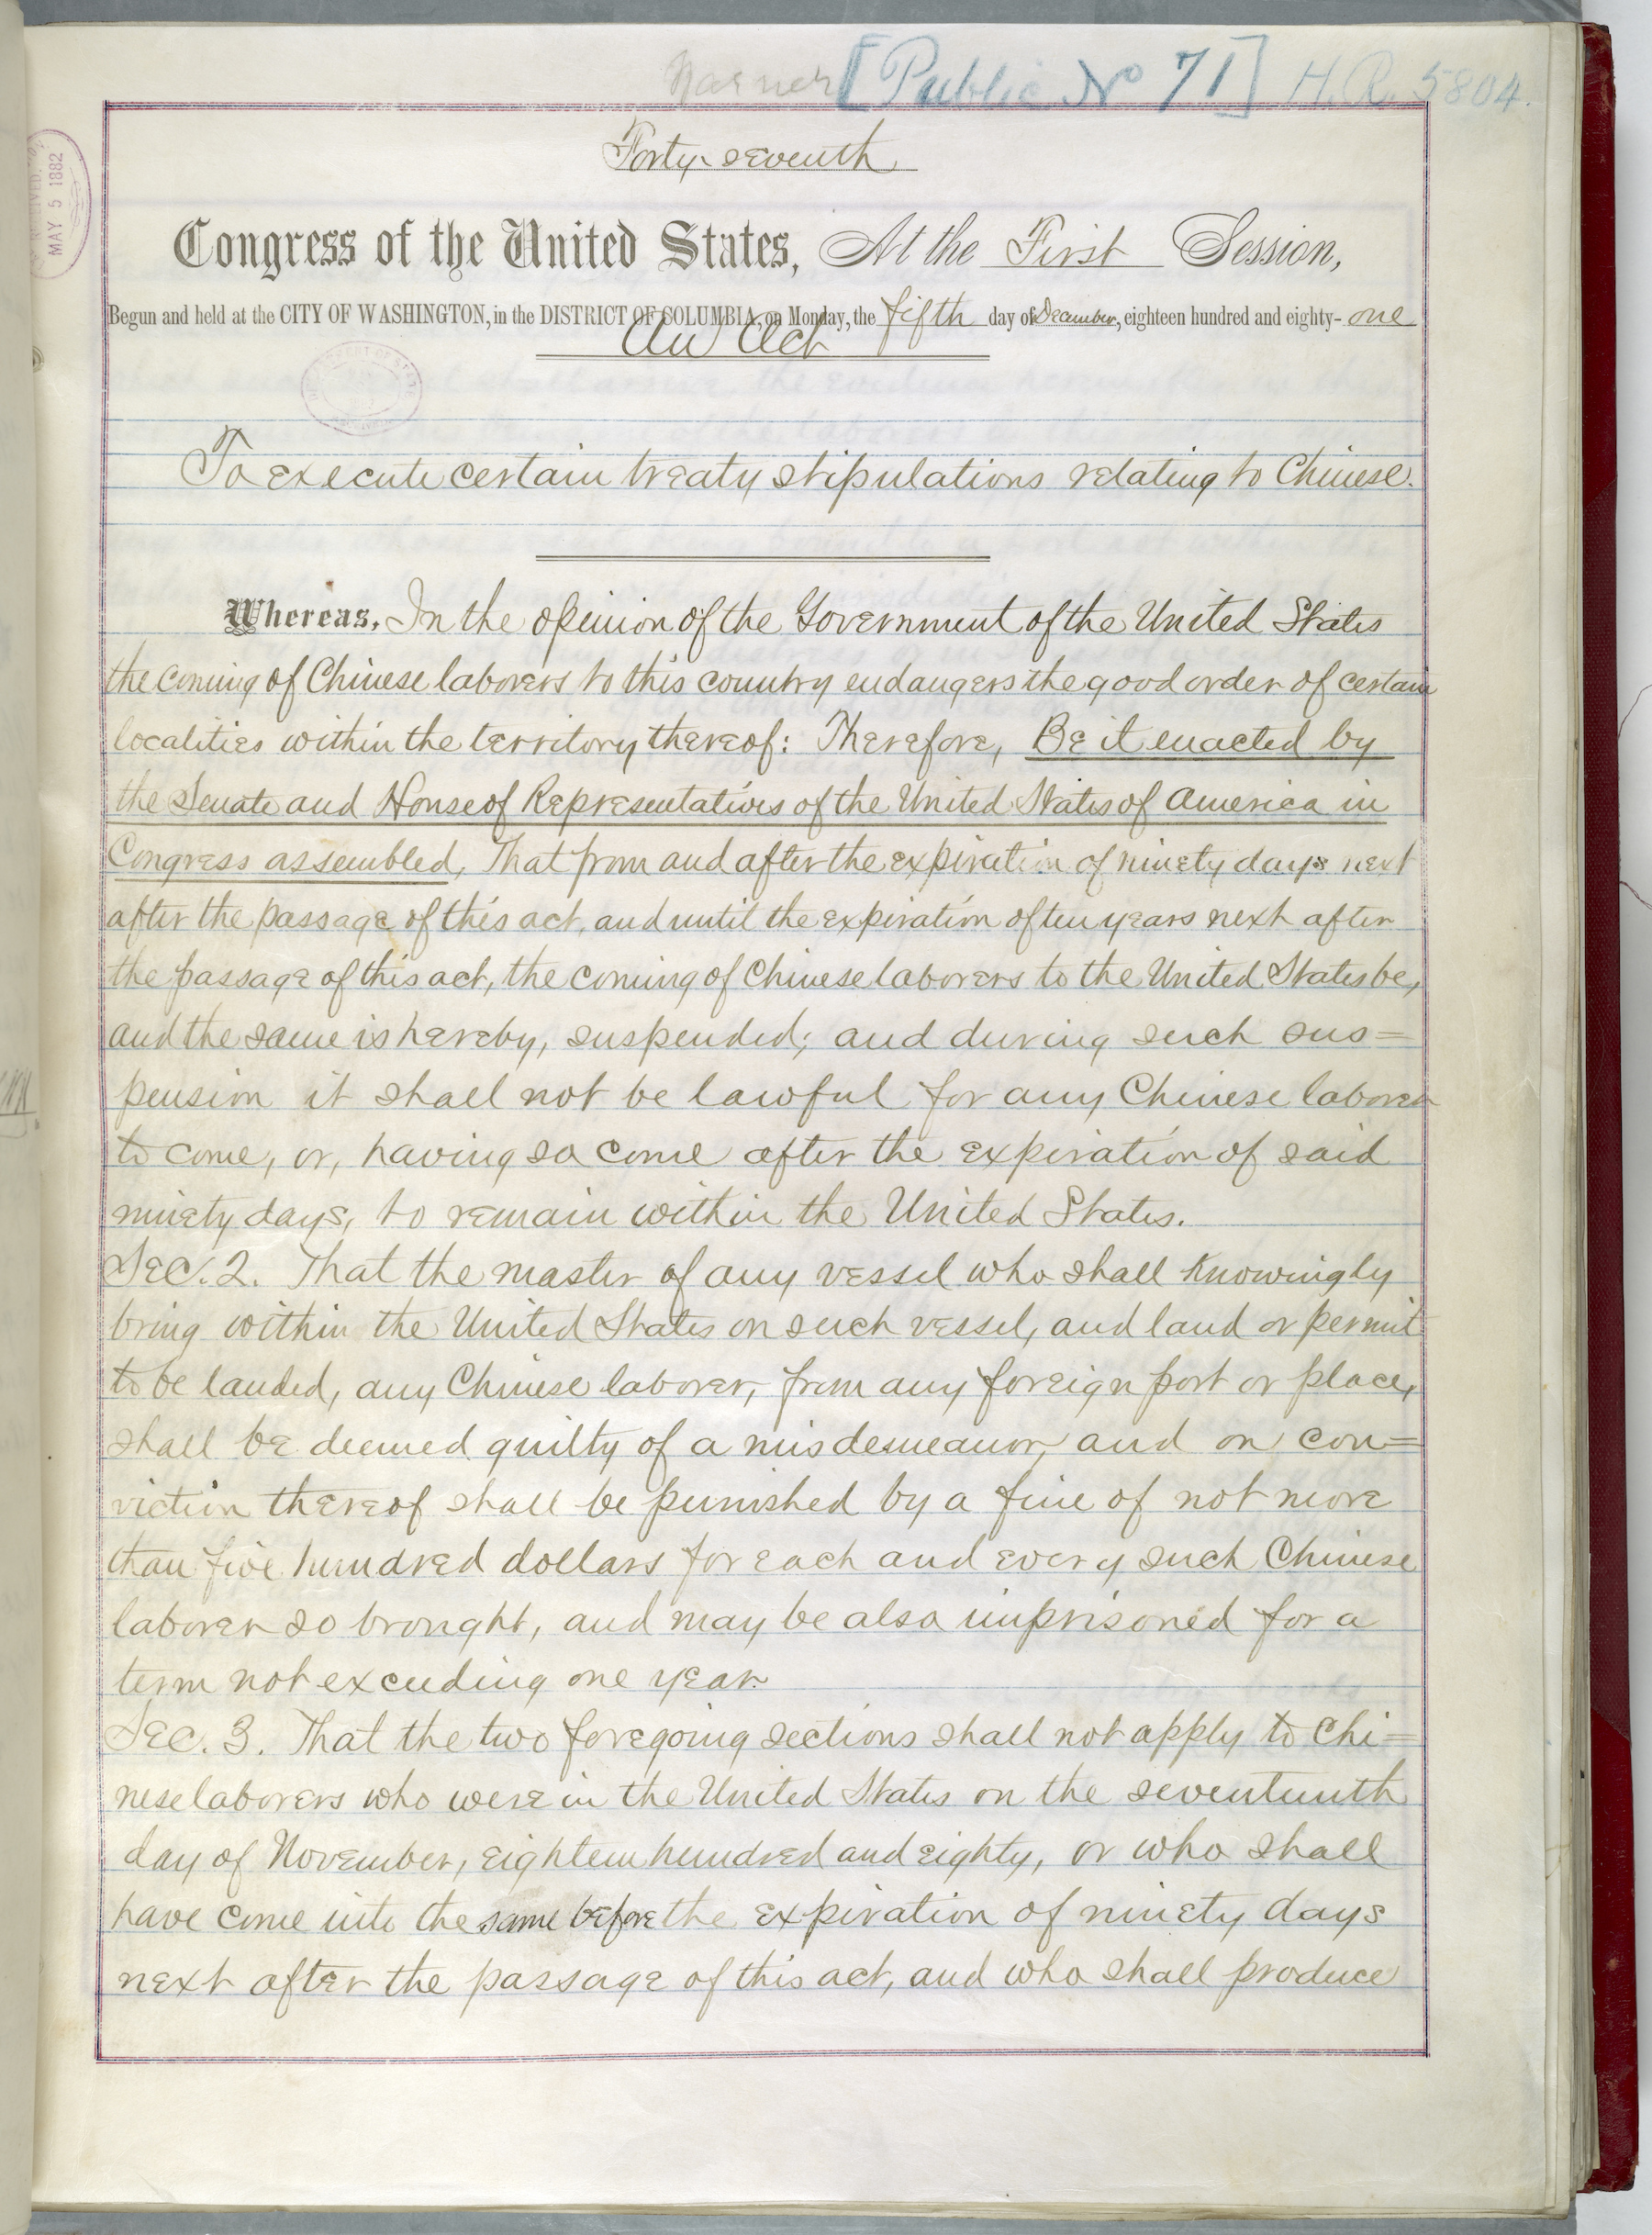 Warner [Public No 71] H.R. 5804.
Forty-seventh
Congress of the United States, At the First Session,
Begun and held at the CITY OF WASHINGTON, in the DISTRICT OF COLUMBIA, on Monday, the fifth day of December, eighteen hundred and eighty-one
An Act
MAY 5 1882
To execute certain treaty stipulations relating to Chinese.
Whereas, In the opinion of the Government of the United States
the coming of Chinese laborers to this country endangers the good order of certain
localities within the territory thereof: Therefore, Be it enacted by
the Senate and House of Representatives of the United States of America in
Congress assembled, That from and after the expiration of ninety days next
after the passage of this act, and until the expiration of ten years next after
the passage of this act, the coming of Chinese laborers to the United States be,
and the same is hereby, suspended; and during such sus=
pension it shall not be lawful for any Chinese laborer
to come, or, having so come after the expiration of said
ninety days, to remain within the United States.
Sec. 2. That the master of any vessel who shall knowingly
bring within the United States on such vessel, and land or permit
to be landed, any Chinese laborer, from any foreign port or place,
shall be deemed guilty of a misdemeanor, and on con=
viction thereof shall be punished by a fine of not more
than five hundred dollars for each and every such Chinese
laborer so brought, and may be also imprisoned for a
term not exceeding one year.
Sec. 3. That the two foregoing sections shall not apply to Chi=
nese laborers who were in the United States on the seventeenth
day of November, eighteen hundred and eighty, or who shall
have come into the same before the expiration of ninety days
next after the passage of this act, and who shall produce